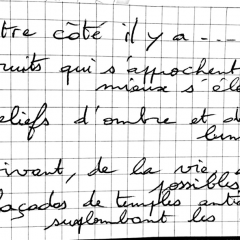 tre côté il y a ....
ruits qui s'approchent
mieux s'éle
eliefs d'ombre et d
lum
ivant, de la vie,
possibles
façades de temples anti
surplombant les